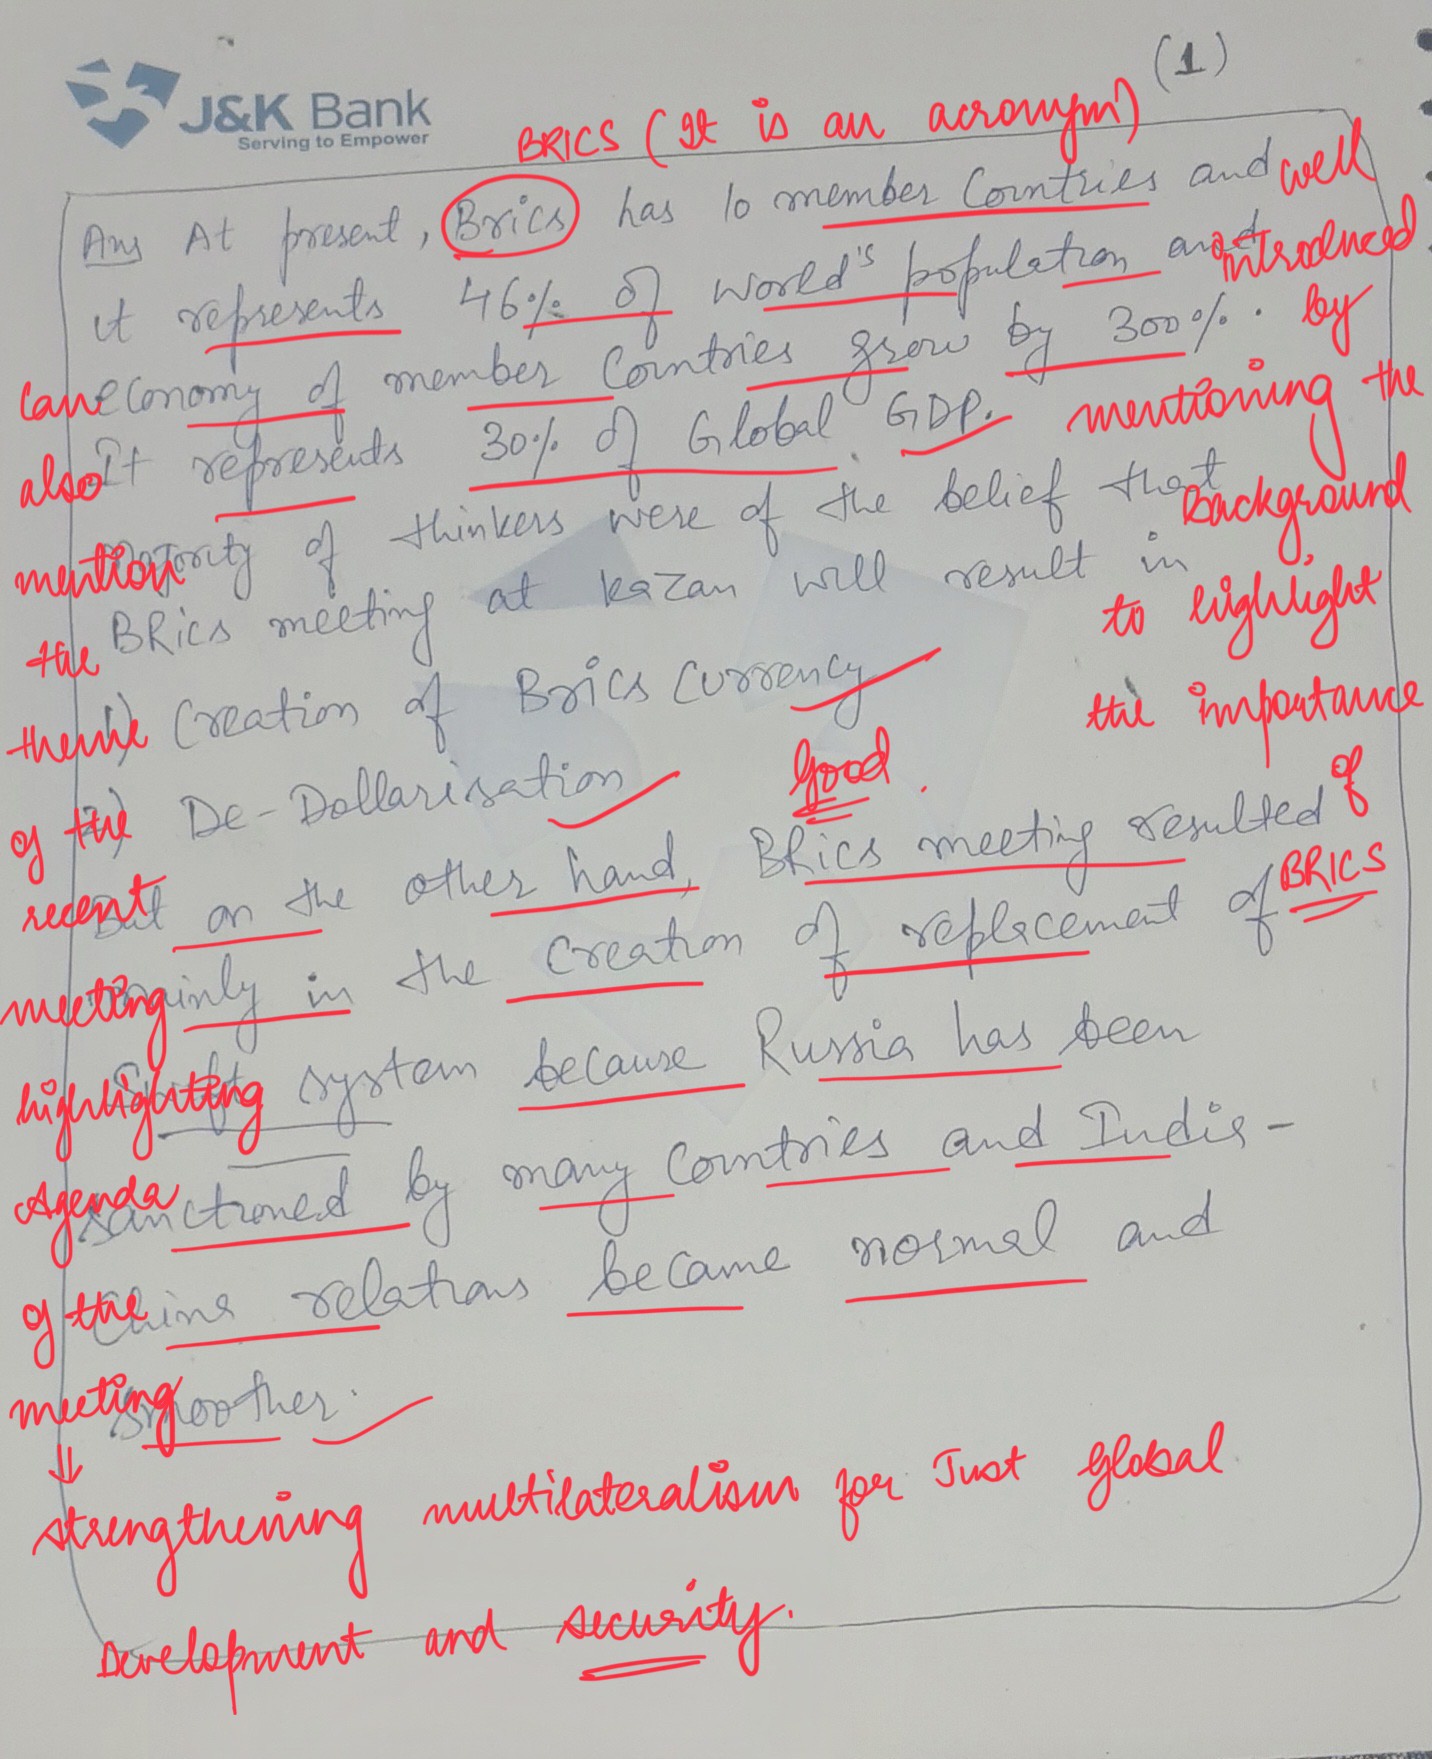 (1)
J&K Bank
Serving to Empower
BRICS (It is an acronym)
Ans At present, Brics has 10 member Countries and
it represents 46% of world's population and
economy of member Countries grow by 300%.
It represents 30% of Global GDP.
Majority of thinkers were of the belief that
BRics meeting at Kazan will result in
1) Creation of Brics Currency
2) De-Dollarisation
But on the other hand, BRics meeting resulted
mainly in the creation of replacement of
Swift system because Russia has been
sanctioned by many Countries and India-
China relations became normal and
smoother.
well
introduced
by
mentioning the
background
to highlight
the importance
of
BRICS
Good.
can
also
mention
the
theme
of the
recent
meeting
highlighting
Agenda
of the
meeting
↓
strengthening multilateralism for Just Global
Development and security.